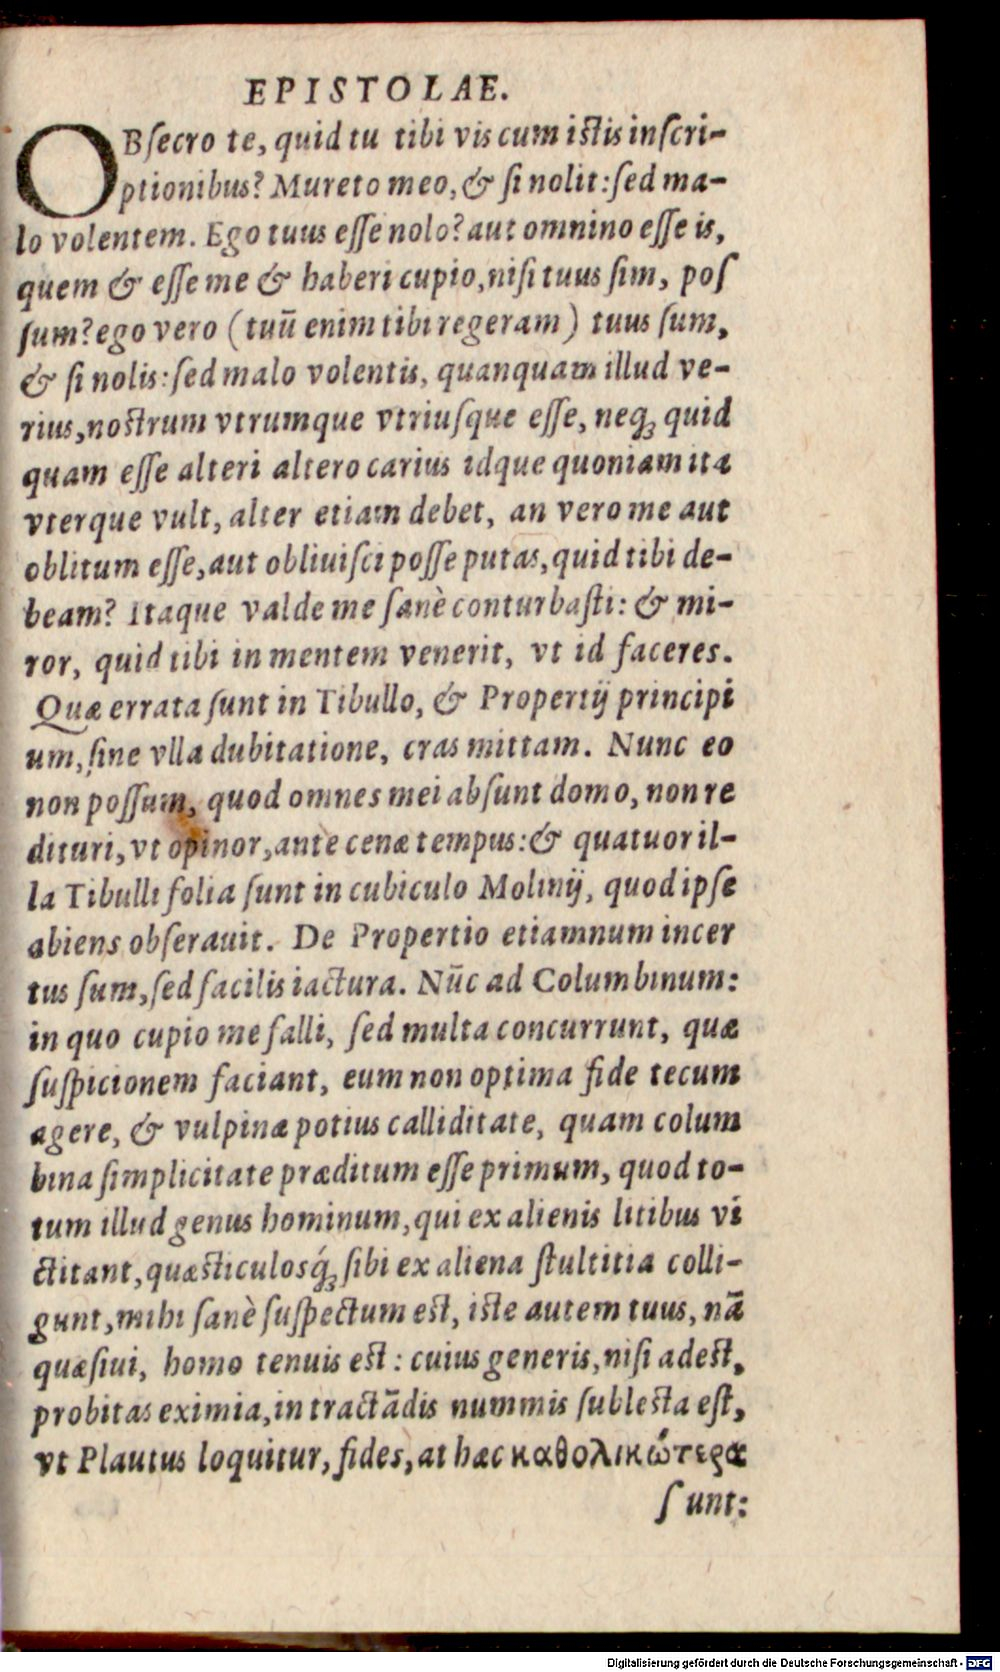 EPISTOLAE.
OBſecro te, quid tu tibi vis cum istis inſcri-
ptionibus? Mureto meo, & ſi nolit: ſed ma-
lo volentem. Ego tuus eſſe nolo? aut omnino eſſe is,
quem & eſſe me & haberi cupio, niſi tuus ſim, poſ
ſum? ego vero (tuũ enim tibi regeram) tuus ſum,
& ſi nolis: ſed malo volentis, quanquam illud ve-
rius, nostrum vtrumque vtriuſque eſſe, neqꝫ quid
quam eſſe alteri altero carius idque quoniam ita
vterque vult, alter etiam debet, an vero me aut
oblitum eſſe, aut obliuiſci poſſe putas, quid tibi de-
beam? Itaque valde me ſanè conturbaſti: & mi-
ror, quid tibi in mentem venerit, vt id faceres.
Quæ errata ſunt in Tibullo, & Propertij principi
um, ſine vlla dubitatione, cras mittam. Nunc eo
non poſſum, quod omnes mei abſunt domo, non re
dituri, vt opinor, ante cenæ tempus: & quatuor il-
la Tibulli folia ſunt in cubiculo Molinij, quod ipſe
abiens obſerauit. De Propertio etiamnum incer
tus ſum, ſed facilis iactura. Nũc ad Columbinum:
in quo cupio me falli, ſed multa concurrunt, quæ
ſuſpicionem faciant, eum non optima fide tecum
agere, & vulpinæ potius calliditate, quam colum
bina ſimplicitate præditum eſſe primum, quod to-
tum illud genus hominum, qui ex alienis litibus vi
ctitant, quæsticulosq́ꝫ ſibi ex aliena ſtultitia colli-
gunt, mihi ſanè ſuſpectum est, iste autem tuus, nã
quæſiui, homo tenuis est: cuius generis, niſi adest,
probitas eximia, in tractãdis nummis ſublesta eſt,
vt Plautus loquitur, fides, at hæc καθολικώτερα
ſunt:
Digitalisierung gefördert durch die Deutsche Forschungsgemeinschaft - DFG